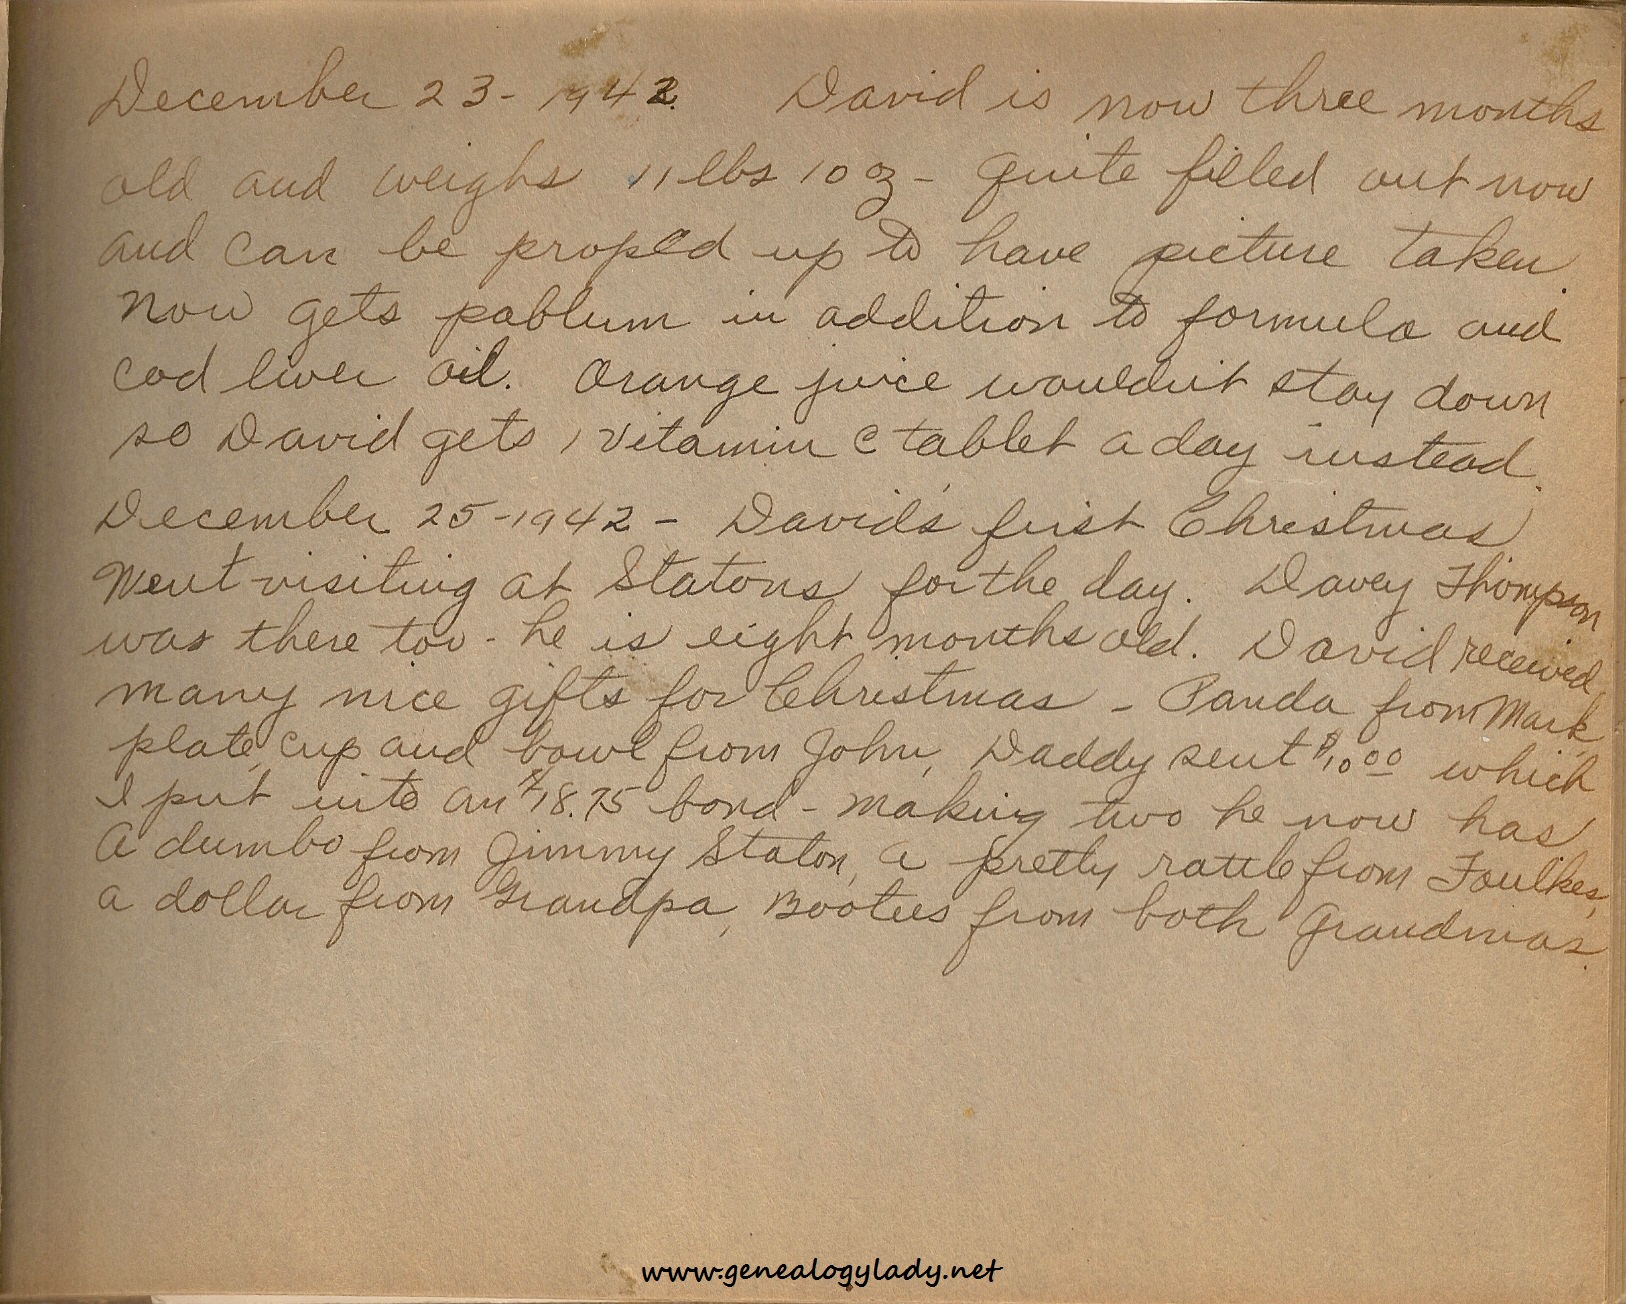 December 23 - 1942. David is now three months
old and weighs 11 lbs 10 oz - quite filled out now
and can be proped up to have picture taken.
Now gets pablum in addition to formula and
cod liver oil. Orange juice wouldn't stay down
so David gets 1 Vitamin C tablet a day instead.
December 25 - 1942 - David's first Christmas
Went visiting at Statons for the day. Davey Thompson
was there too - he is eight months old. David received
many nice gifts for Christmas - Panda from Mark,
plate, cup and bowl from John, Daddy sent $10.00 which
I put into an $18.75 bond - making two he now has
A dumbo from Jimmy Staton, a pretty rattle from Foulkes,
a dollar from Grandpa, Booties from both Grandmas.
www.genealogylady.net